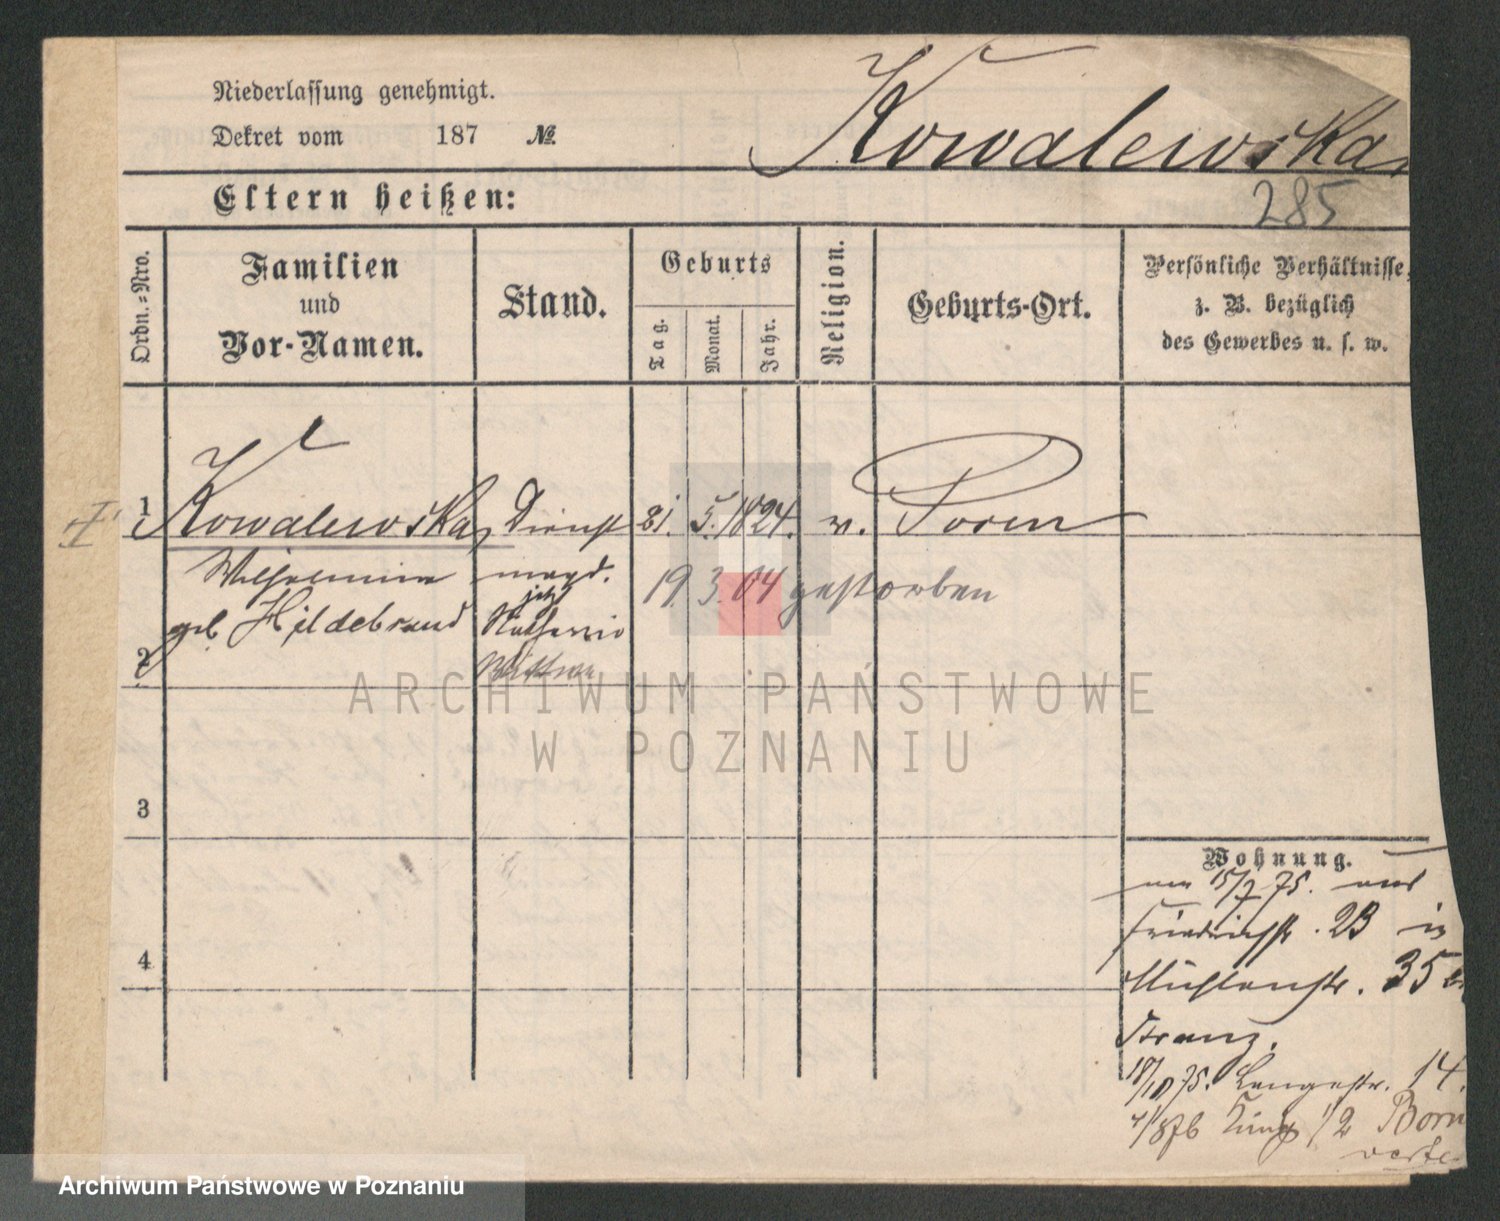 Niederlassung genehmigt.
Dekret vom 187 №
Kowalewska,
Eltern heißen:
285
Ordn.-Nro.
Familien
und
Vor-Namen.
Stand.
Geburts
Tag.
Monat.
Jahr.
Religion.
Geburts-Ort.
Persönliche Verhältnisse,
z. B. bezüglich
des Gewerbes u. s. w.
1 Kowalewska, Dienst 5. 1824.
Wilhelmine magd. 19. 3. 04 gestorben
geb Hildebrand jetzt
2 Wittwe
3
4
Wohnung.
am 15/7 75. aus
Friedrichstr. 23 in
Mühlenstr. 35 bei
Franz.
18/10 75. Langestr. 14.
1/2 Born
ARCHIWUM PAŃSTWOWE
W POZNANIU
Archiwum Państwowe w Poznaniu